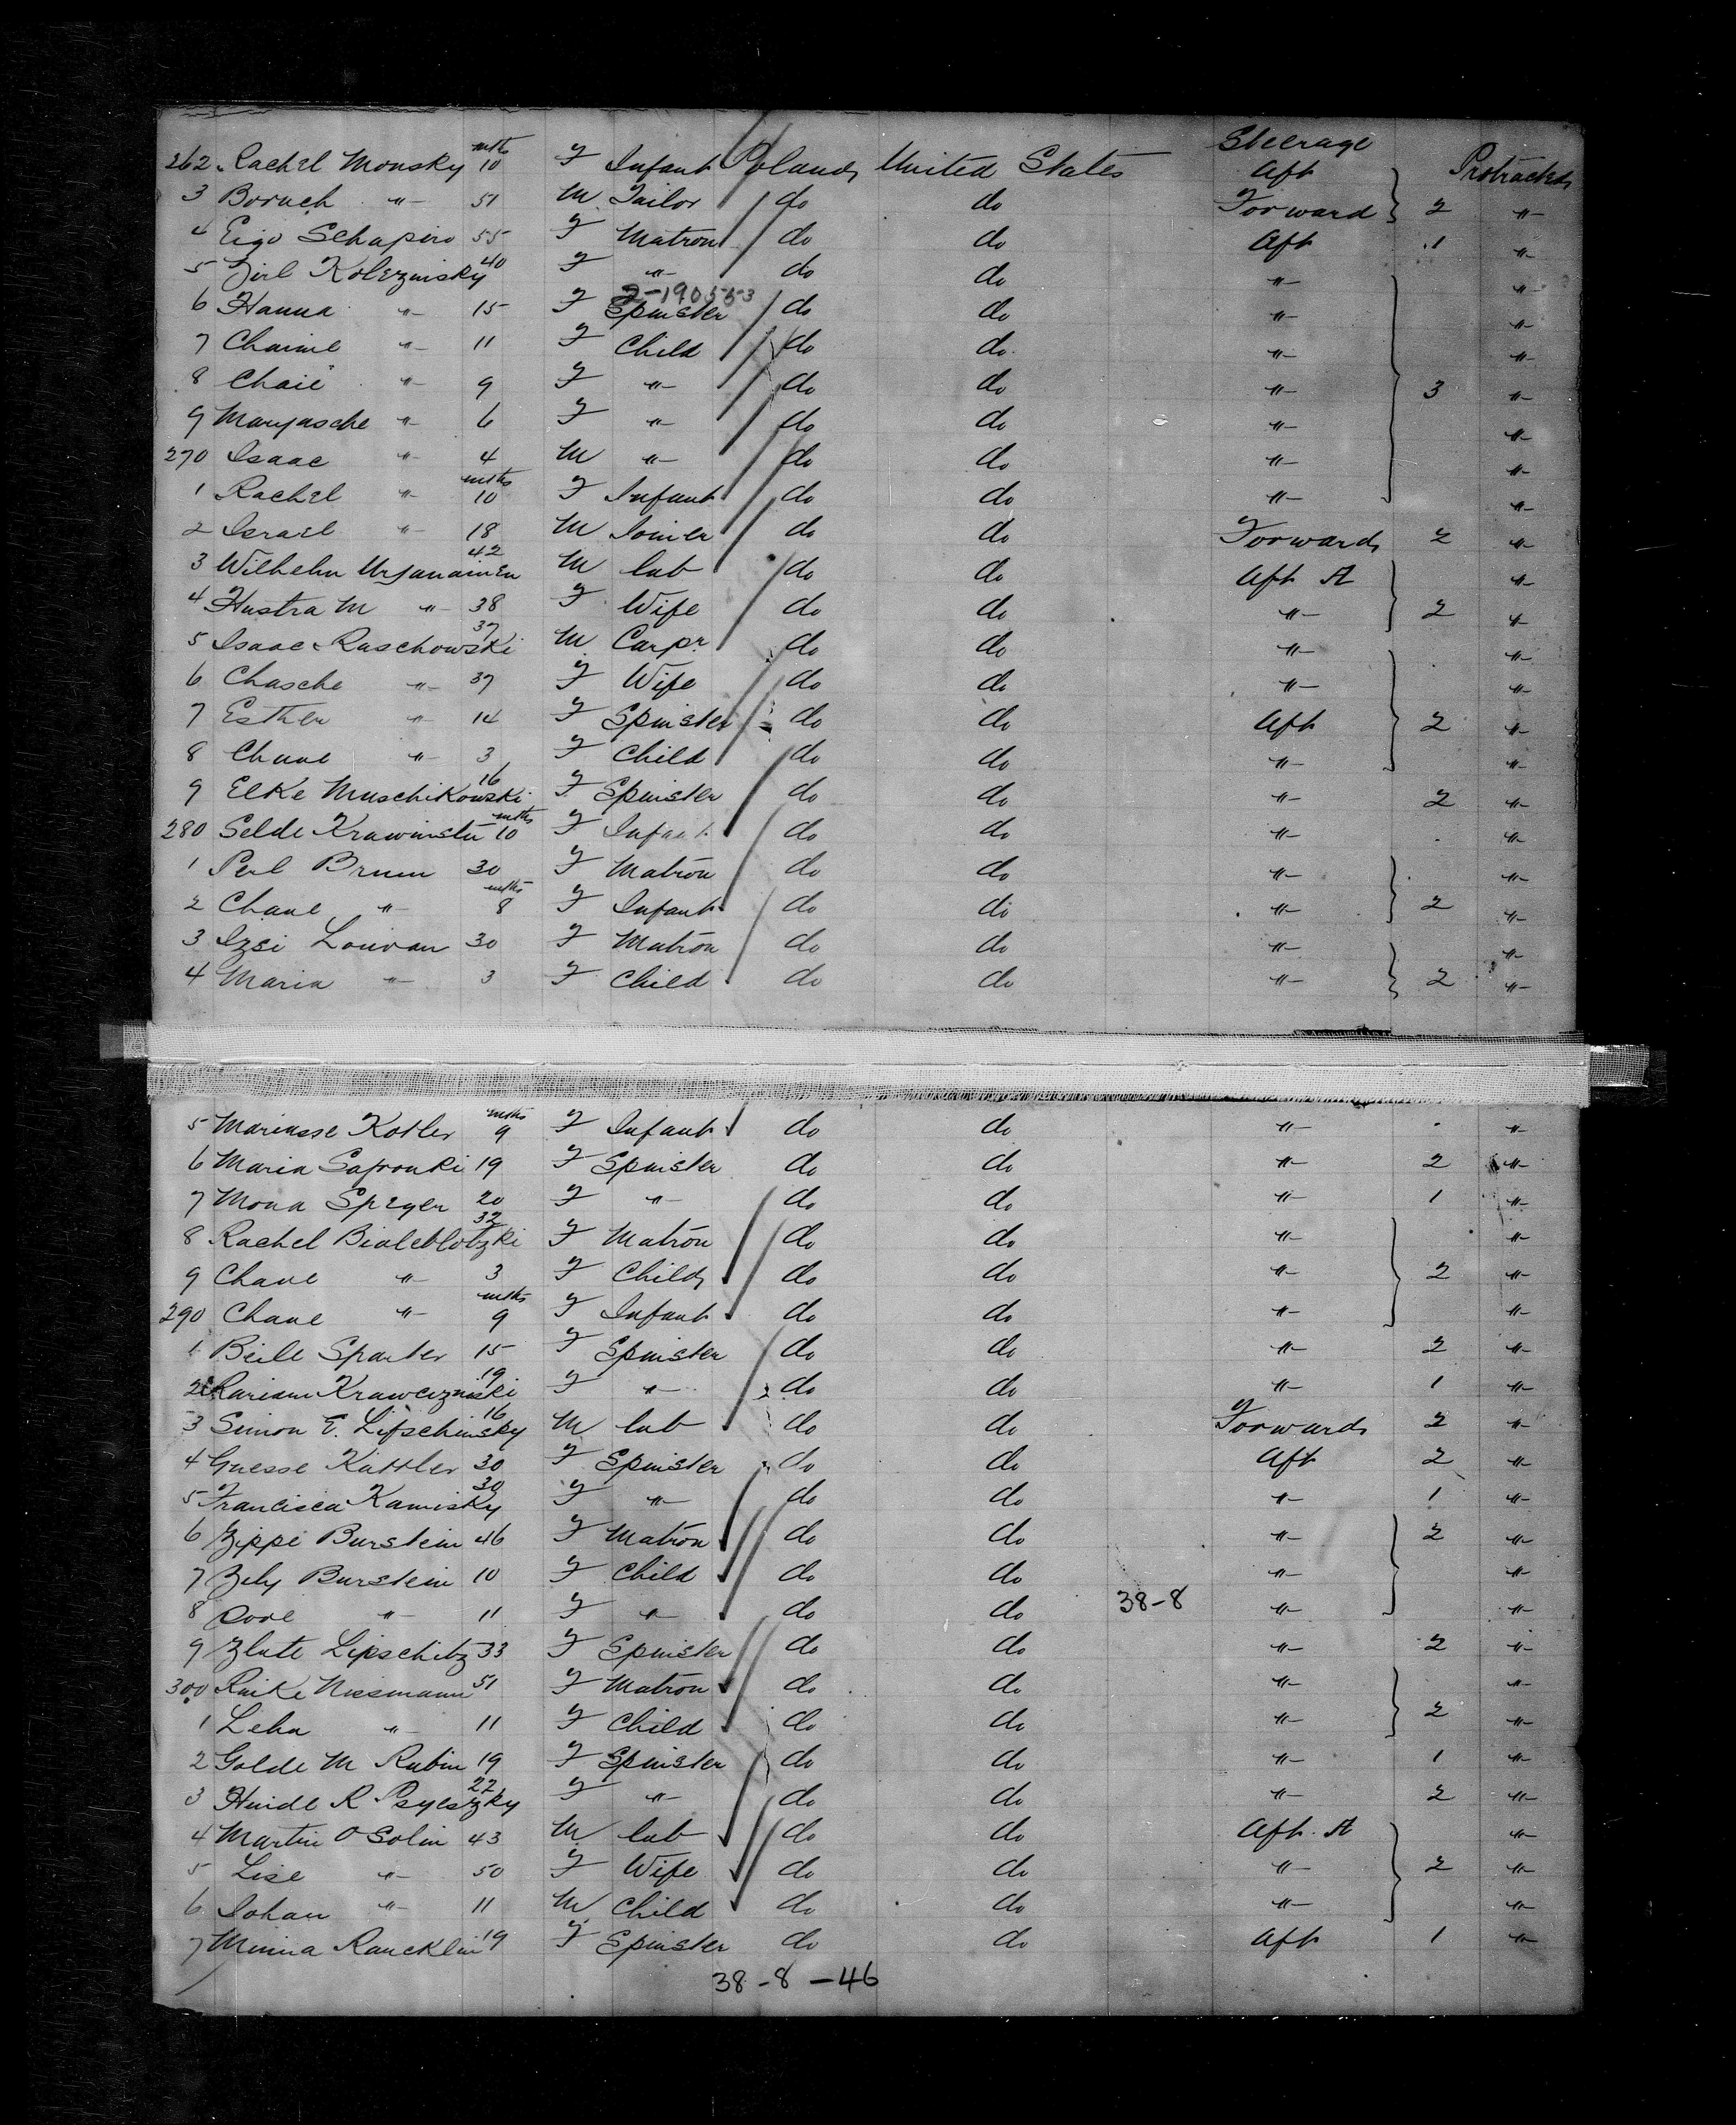 Steerage
262 Rachel Monsky mths 10 F Infant Poland United States Aft Protracted
3 Boruch " 51 M Tailor do do Forward 2 "
4 Eigo Schapiro 55 F Matron do do Aft 1 "
5 Zirl Kolezinsky 40 F " do do " "
2-190553
6 Hanna " 15 F Spinster do do " "
7 Chaime " 11 F Child do do " "
8 Chaie " 9 F " do do " 3 "
9 Maryasche " 6 F " do do " "
270 Isaac " 4 M " do do " "
1 Rachel " mths 10 F Infant do do " "
2 Israel " 18 M Joiner do do Forward 2 "
3 Wilhelm Urjanainen 42 M lab do do Aft A "
4 Hustra M " 38 F Wife do do " 2 "
5 Isaac Raschowski 37 M Carpr do do " "
6 Chasche " 37 F Wife do do " "
7 Esther " 14 F Spinster do do Aft 2 "
8 Chane " 3 F Child do do " "
9 Elke Muschikowski 16 F Spinster do do " 2 "
280 Selde mths 10 F Infant do do " "
1 Perl Brum 30 F Matron do do " "
2 Chane " mths 8 F Infant do do " 2 "
3 Izsi Louvan 30 F Matron do do " "
4 Maria " 3 F Child do do " 2 "
5 Mariasse Kotler mths 9 F Infant do do " "
6 Maria Sapronki 19 F Spinster do do " 2 "
7 Mona Speyer 20 F " do do " 1 "
8 Rachel Bialeblotzki 32 F Matron do do " "
9 Chane " 3 F Child do do " 2 "
290 Chane " mths 9 F Infant do do " "
1 Beile Sparter 15 F Spinster do do " 2 "
2 Mariam Krawczinski 19 F " do do " 1 "
3 Simon E. Lifschinsky 16 M lab do do Forward 2 "
4 Guesse Kattler 30 F Spinster do do Aft 2 "
5 Francisca Kamisky 30 F " do do " 1 "
6 Zippe Burstein 46 F Matron do do " 2 "
7 Zely Burstein 10 F Child do do " "
8 Dore " 11 F " do do 38-8 " "
9 Zlate Lipschitz 33 F Spinster do do " 2 "
300 Raike Nissmann 51 F Matron do do " "
1 Leha " 11 F Child do do " 2 "
2 Golde M Rubin 19 F Spinster do do " 1 "
3 Hinde R 22 F " do do " 2 "
4 Martin O Solin 43 M lab do do Aft A "
5 Lise " 50 F Wife do do " 2 "
6 Johan " 11 M Child do do " "
7 Minna Raucklin 19 F Spinster do do Aft 1 "
38-8-46